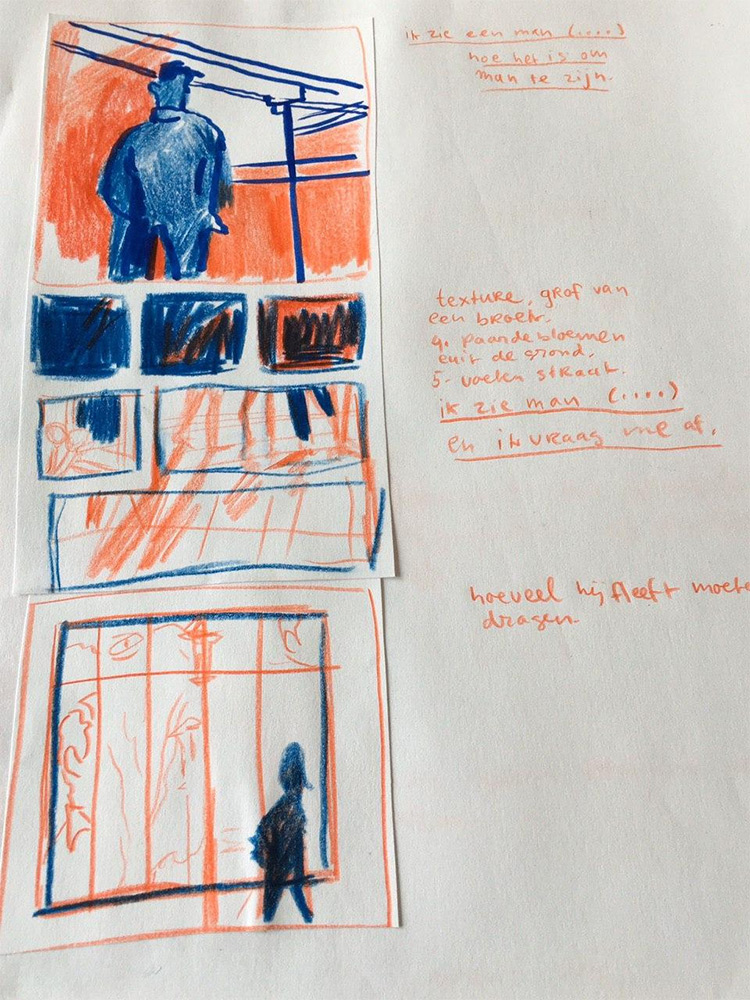 ik zie een man (....)
hoe het is om
man te zijn.
texture, grof van
een broek.
4. paardebloemen
euit de grond.
5- voelen straat.
ik zie man (....)
en ik vraag me af.
hoeveel hij fleeft moete
dragen.